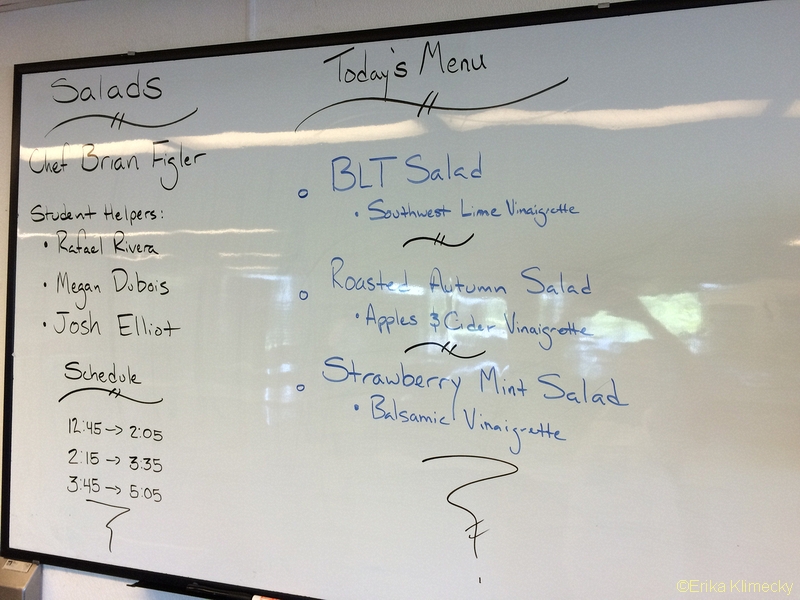 Salads
Chef Brian Figler
Student Helpers:
• Rafael Rivera
• Megan Dubois
• Josh Elliot
Schedule
12:45 → 2:05
2:15 → 3:35
3:45 → 5:05
Today's Menu
○ BLT Salad
• Southwest Lime Vinaigrette
○ Roasted Autumn Salad
• Apples & Cider Vinaigrette
○ Strawberry Mint Salad
• Balsamic Vinaigrette
©Erika Klimecky